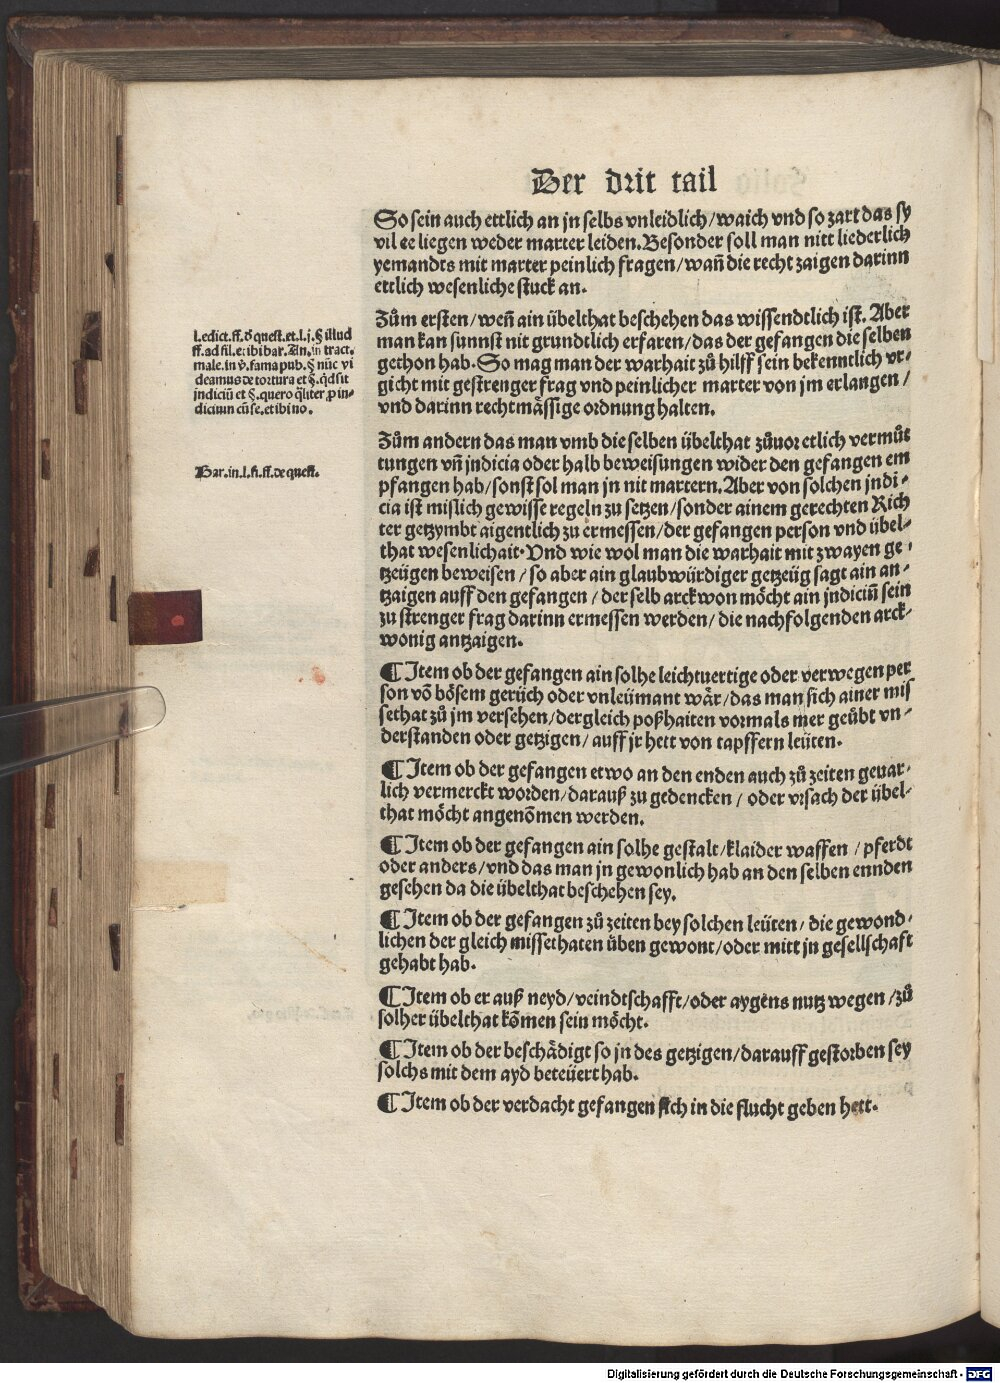 Der drit tail
So sein auch ettlich an jn selbs vnleidlich/waich vnd so zart das sy
vil ee liegen weder marter leiden. Besonder soll man nitt liederlich
yemandts mit marter peinlich fragen/wañ die recht zaigen darinn
ettlich wesenliche stuck an.
l.edict.ff.ð quest.et.l.j.§ illud
ff.ad sil.e: ibi bar. An. in tract.
male.in ỹ.fama pub.§ nũc vi
deamus de tortura et §.q̃d sit
jndiciũ et §.quero q̃liter ꝓ in-
dicium cũ se.et ibi no.
Zům ersten/weñ ain übelthat beschehen das wissendtlich ist. Aber
man kan sunnst nit grundtlich erfaren/das der gefangen die selben
gethon hab. So mag man der warhait zů hilff sein bekenntlich vr-
gicht mit gestrenger frag vnd peinlicher marter von jm erlangen/
vnd darinn rechtmässige ordnung halten.
Bar.in.l.fi.ff.de quest.
Zům andern das man vmb die selben übelthat zůuor etlich vermů
tungen vñ jndicia oder halb beweisungen wider den gefangen em
pfangen hab/sonst sol man jn nit martern. Aber von solchen jndi-
cia ist mislich gewisse regeln zu setzen/sonder ainem gerechten Rich
ter getzymbt aigentlich zu ermessen/der gefangen person vnd übel-
that wesenlichait. Vnd wie wol man die warhait mit zwayen ge-
tzeügen beweisen/so aber ain glaubwürdiger getzeüg sagt ain an-
tzaigen auff den gefangen/der selb arckwon möcht ain jndiciũ sein
zu strenger frag darinn ermessen werden/die nachfolgenden arck-
wonig antzaigen.
¶ Jtem ob der gefangen ain solhe leichtuertige oder verwegen per
son võ bösem gerüch oder vnleümant wär/das man sich ainer mis
sethat zů jm versehen/dergleich poßhaiten vormals mer geübt vn-
derstanden oder getzigen/auff jr hett von tapffern leüten.
¶ Jtem ob der gefangen etwo an den enden auch zů zeiten geuar-
lich vermerckt worden/darauß zu gedencken/oder vrsach der übel-
that möcht angenõmen werden.
¶ Jtem ob der gefangen ain solhe gestalt/klaider waffen/pferdt
oder anders/vnd das man jn gewonlich hab an den selben ennden
gesehen da die übelthat beschehen sey.
¶ Jtem ob der gefangen zů zeiten bey solchen leüten/die gewond-
lichen der gleich missethaten üben gewont/oder mitt jn gesellschaft
gehabt hab.
¶ Jtem ob er auß neyd/veindtschafft/oder aygēns nutz wegen/zů
solher übelthat kõmen sein möcht.
¶ Jtem ob der beschädigt so jn des getzigen/darauff gestorben sey
solchs mit dem ayd beteüert hab.
¶ Jtem ob der verdacht gefangen sich in die flucht geben hett.
Digitalisierung gefördert durch die Deutsche Forschungsgemeinschaft - DFG